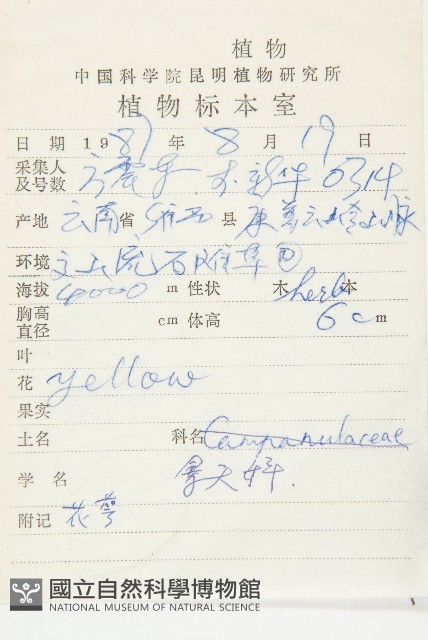 植物
中国科学院昆明植物研究所
植物标本室
日期 1987 年 8 月 19 日
采集人
及号数 新华 0314
产地 云南省 维西 县 山脉
环境 流石滩草
海拔 4000 m 性状 木 herb 本
胸高
直径 cm 体高 6 cm
叶
花 yellow
果实
土名 科名 Campanulaceae
学名 景天科.
附记 花萼
國立自然科學博物館
NATIONAL MUSEUM OF NATURAL SCIENCE